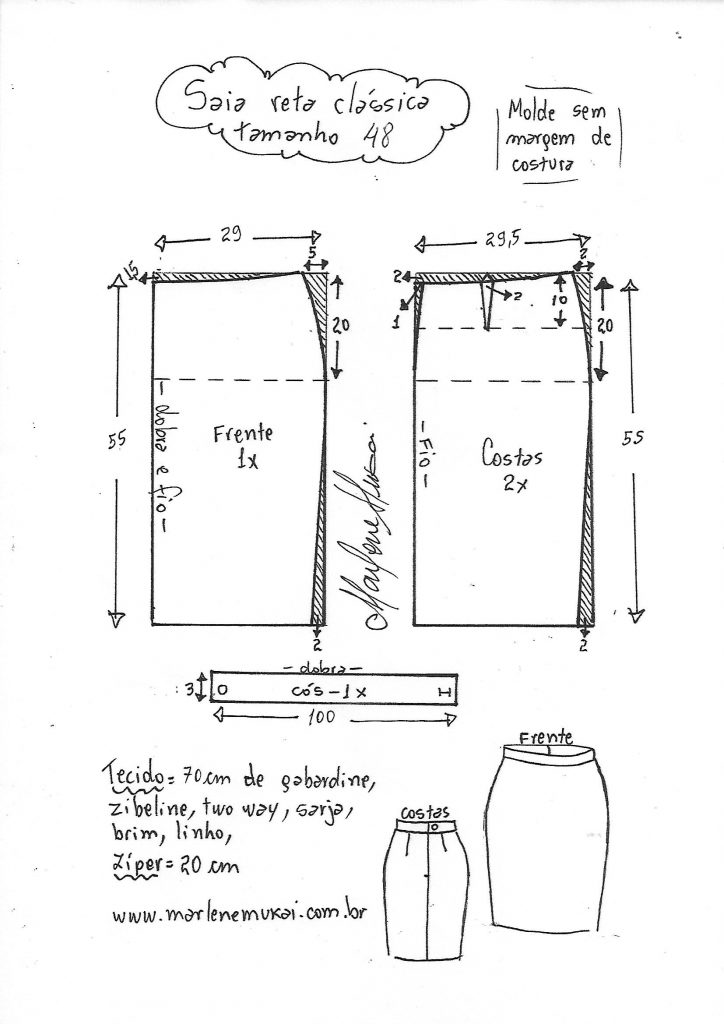 Saia reta clássica
tamanho 48
Molde sem
margem de
costura
29
5
1,5
20
55
dobra e fio
Frente
1x
2
29,5
2
2
1
2
10
20
55
Fio
Costas
2x
2
Marlene Mukai
dobra
3
cós - 1x
100
Tecido = 70 cm de gabardine,
zibeline, two way, sarja,
brim, linho,
Zíper = 20 cm
www.marlenemukai.com.br
costas
Frente